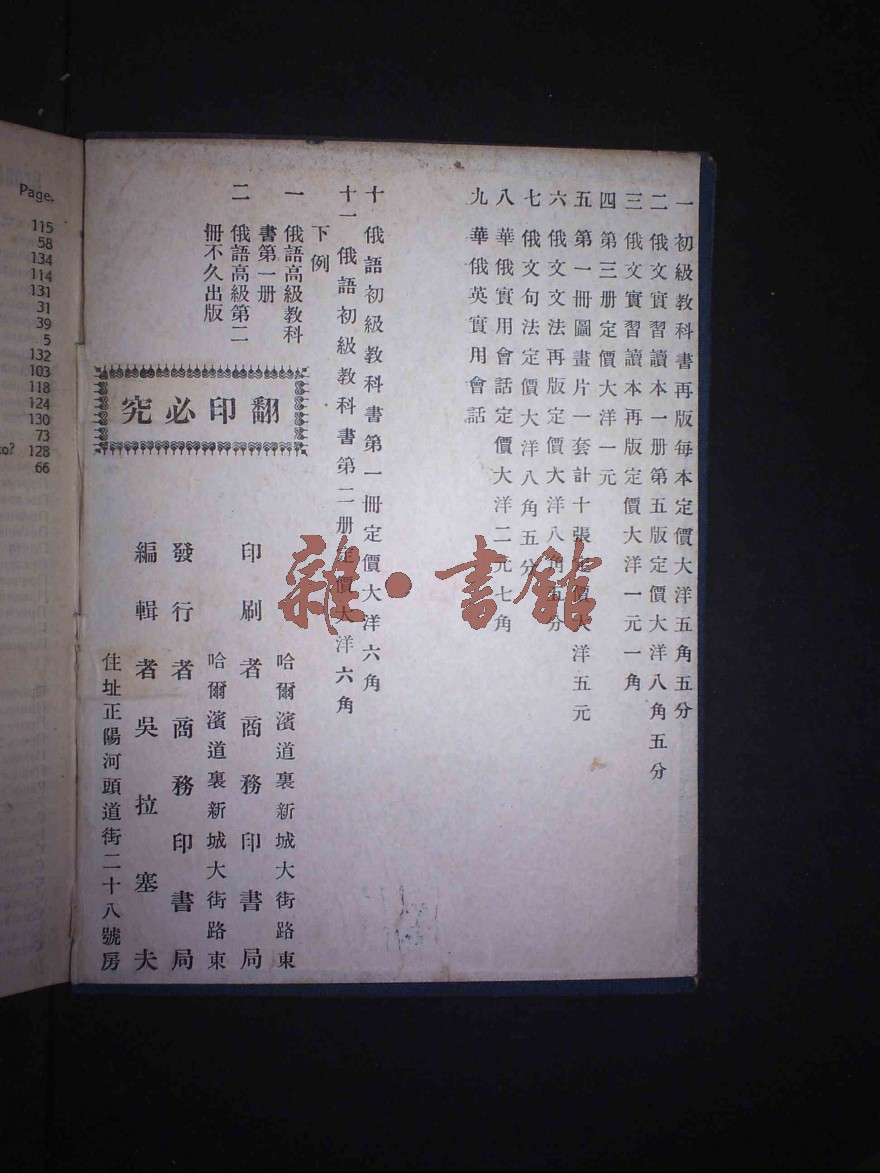 Page.
115
58
134
114
131
31
39
5
132
103
118
124
130
73
128
66
一 初級教科書再版每本定價大洋五角五分
二 俄文實習讀本一册第五版定價大洋八角五分
三 俄文實習讀本再版定價大洋一元一角
四 第三册定價大洋一元
五 第一冊圖畫片一套計十張定價大洋五元
六 俄文文法再版定價大洋八角五分
七 俄文句法定價大洋八角五分
八 華俄實用會話定價大洋二元七角
九 華俄英實用會話
十 俄語初級教科書第一冊定價大洋六角
十一 俄語初級教科書第二册定價大洋六角
下例
一 俄語高級教科
書第一册
二 俄語高級第二
冊不久出版
翻印必究
哈爾濱道裏新城大街路東
印刷者商務印書局
哈爾濱道裏新城大街路東
發行者商務印書局
編輯者吳拉塞夫
住址正陽河頭道街二十八號房
雜·書館